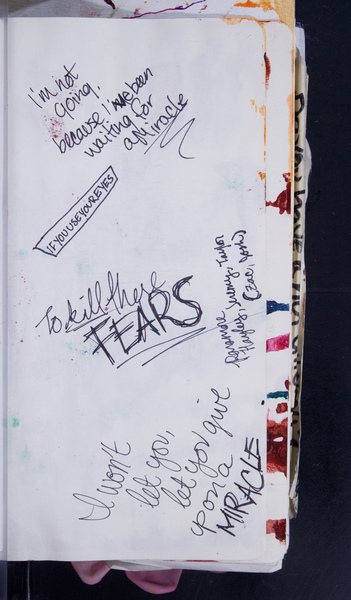 I'm not
going,
because I've been
waiting for
a Miracle
IF YOU USE YOUR EYES
To kill these
FEARS
Paramore
Hayley, Jeremy, Taylor
(Zac, Josh)
I won't
let you,
let you give
up on a
MIRACLE